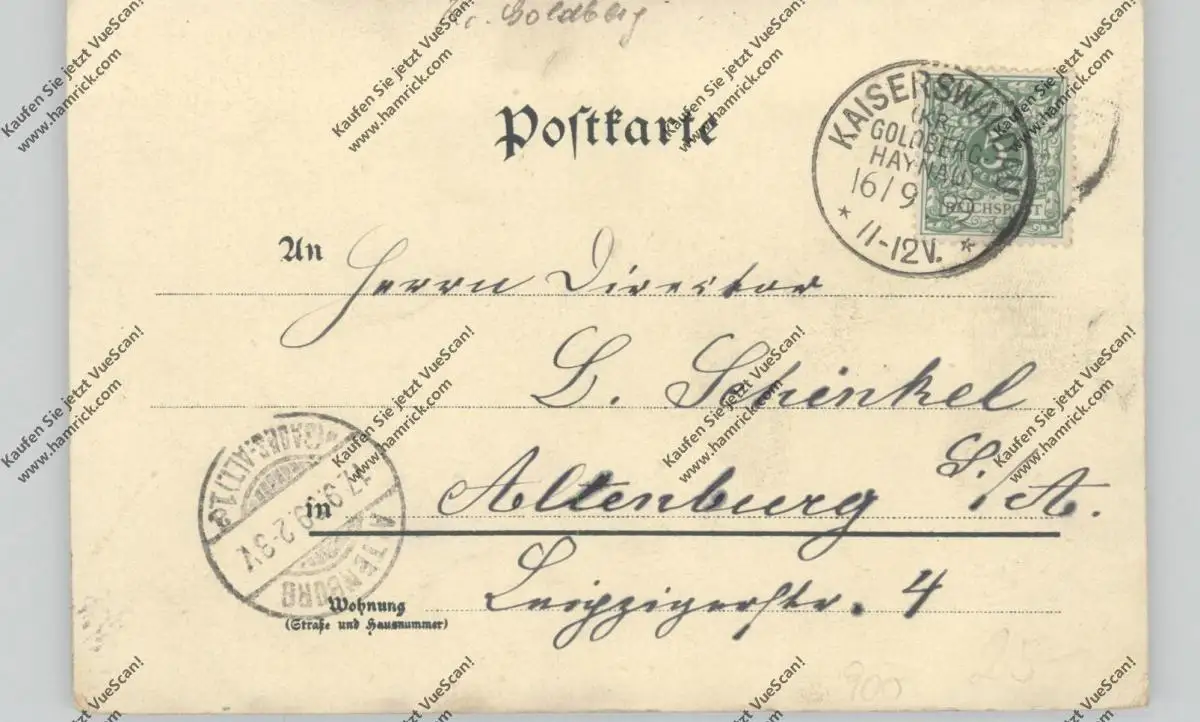 Kr. Goldberg
Postkarte
KAISERSWALDAU
(KR.
GOLDBERG-
HAYNAU)
16/9 99
* 11-12V. *
REICHSPOST
An
Herrn Director
L. Schinkel
in Altenburg S./A.
ALTENBURG
(SACHS.-ALT.) 1a
17.9.99. 2-3V
Leipzigerstr. 4
Wohnung
(Straße und Hausnummer)
900
25-
Kaufen Sie jetzt VueScan!
www.hamrick.com